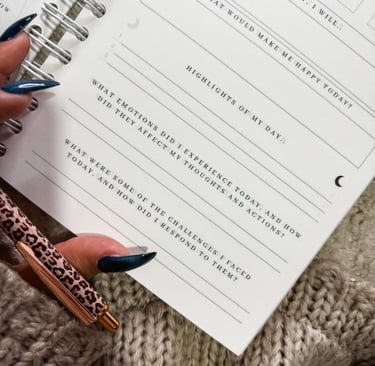 I WILL..
WHAT WOULD MAKE ME HAPPY TODAY?
HIGHLIGHTS OF MY DAY..
WHAT EMOTIONS DID I EXPERIENCE TODAY, AND HOW
DID THEY AFFECT MY THOUGHTS AND ACTIONS?
WHAT WERE SOME OF THE CHALLENGES I FACED
TODAY, AND HOW DID I RESPOND TO THEM?